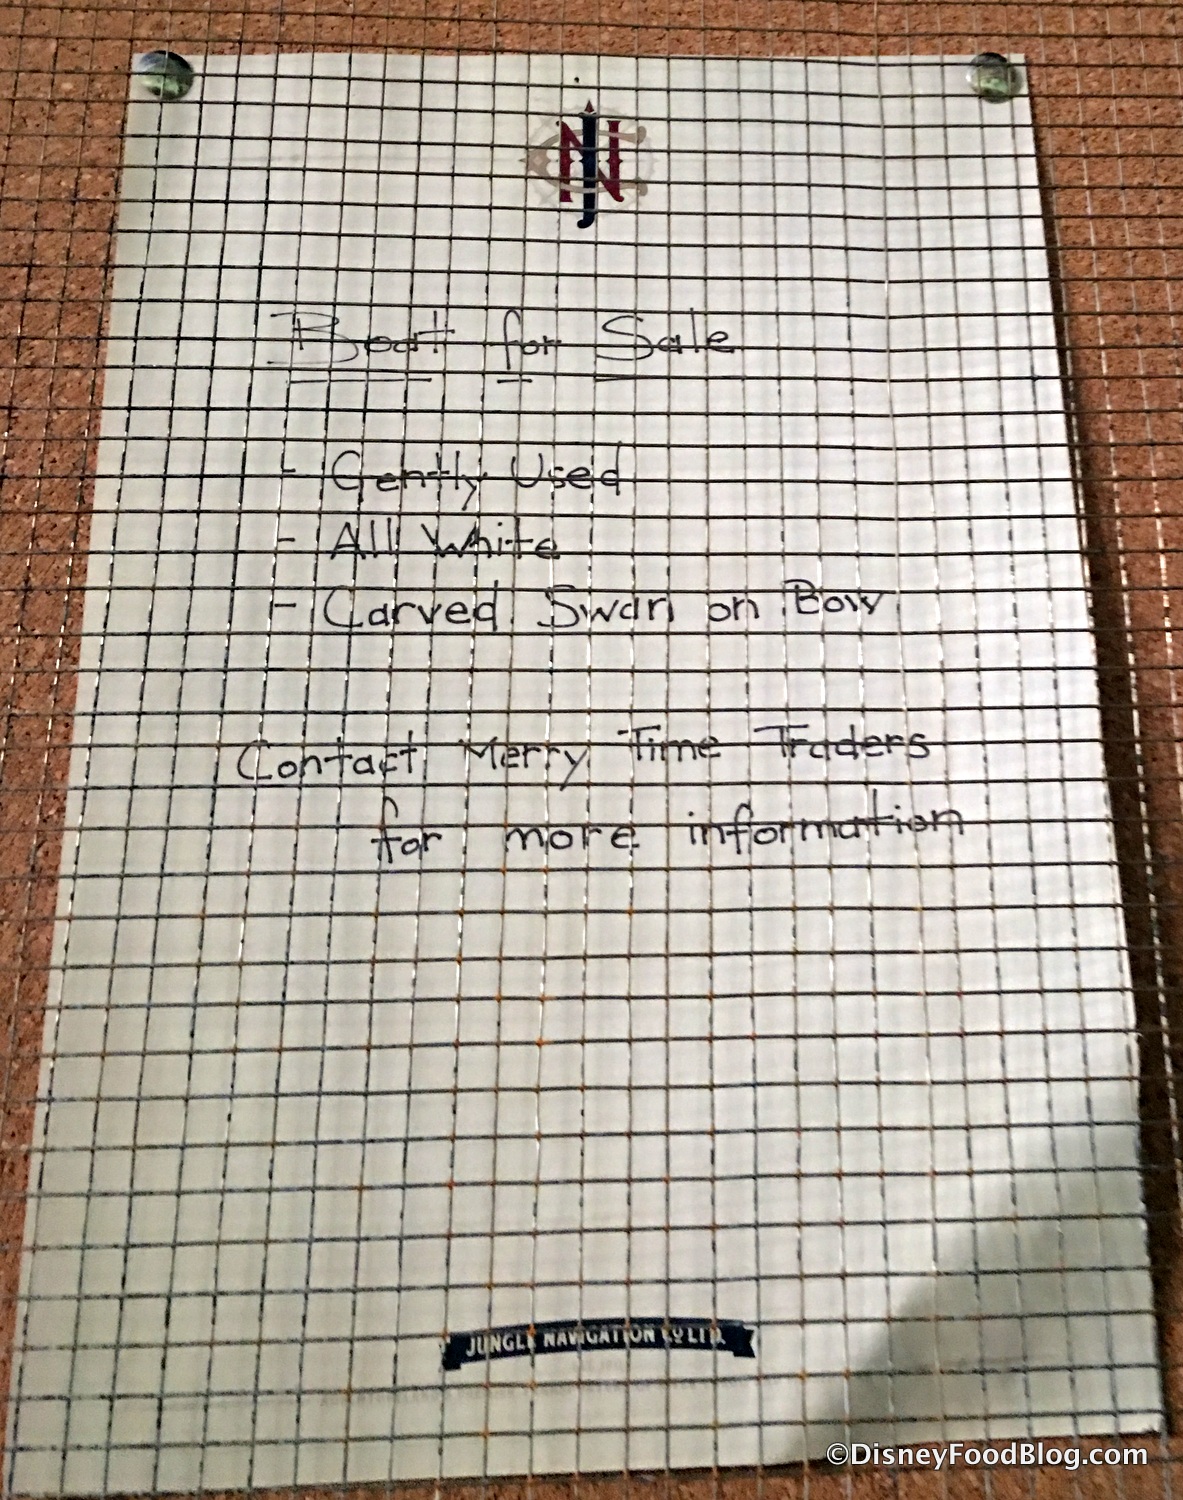 JNC
Boat for Sale
- Gently Used
- All White
- Carved Swan on Bow
Contact Merry Time Traders
for more information
JUNGLE NAVIGATION CO LTD.
©DisneyFoodBlog.com